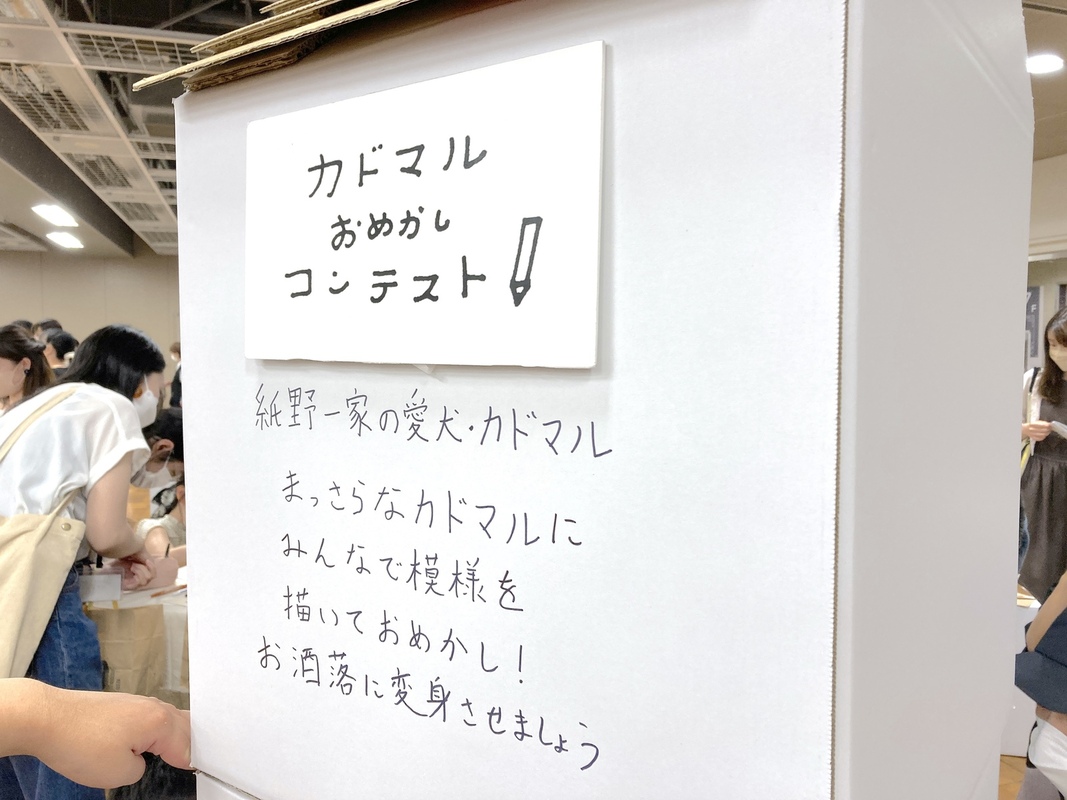 カドマル
おめかし
コンテスト
紙野一家の愛犬・カドマル
まっさらなカドマルに
みんなで模様を
描いておめかし！
お洒落に変身させましょう